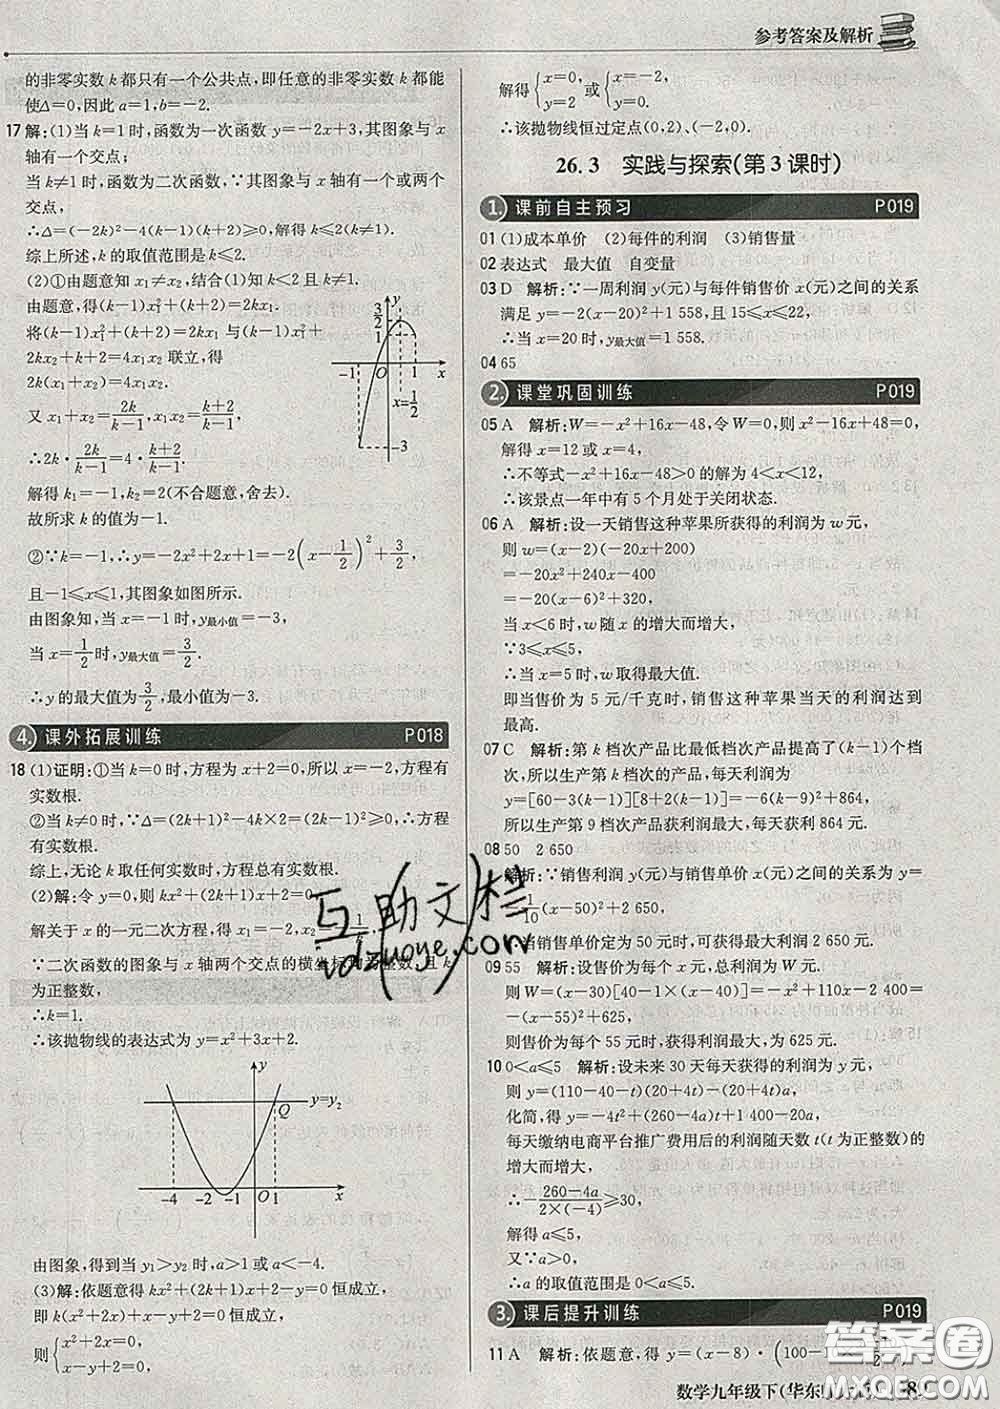 参考答案及解析
的非零实数 k 都只有一个公共点，即任意的非零实数 k 都能
使Δ=0，因此 a=1，b=-2.
17 解：(1)当 k=1时，函数为一次函数 y=-2x+3，其图象与 x
轴有一个交点；
当 k≠1 时，函数为二次函数，∵其图象与 x 轴有一个或两个
交点，
∴Δ=(-2k)²-4(k-1)(k+2)≥0，解得 k≤2(k≠1).
综上所述，k 的取值范围是 k≤2.
(2)①由题意知 x₁≠x₂，结合(1)知 k<2 且 k≠1.
由题意，得(k-1)x₁²+(k+2)=2kx₁.
将(k-1)x₁²+(k+2)=2kx₁ 与(k-1)x₁²+
2kx₂+k+2=4x₁x₂ 联立，得
2k(x₁+x₂)=4x₁x₂.
又 x₁+x₂=2k/(k-1)，x₁x₂=(k+2)/(k-1)，
∴2k·2k/(k-1)=4·(k+2)/(k-1).
解得 k₁=-1，k₂=2(不合题意，舍去).
故所求 k 的值为-1.
y 3/2 -1 O 1 x x=1/2 -3
②∵k=-1，∴y=-2x²+2x+1=-2(x-1/2)²+3/2，
且-1≤x≤1，其图象如图所示.
由图象知，当 x=-1 时，y最小值=-3，
当 x=1/2时，y最大值=3/2.
∴y 的最大值为3/2，最小值为-3.
4. 课外拓展训练 P018
18 (1)证明：①当 k=0 时，方程为 x+2=0，所以 x=-2，方程有
实数根.
②当 k≠0 时，∵Δ=(2k+1)²-4k×2=(2k-1)²≥0，∴方程
有实数根.
综上，无论 k 取任何实数时，方程总有实数根.
(2)解：令 y=0，则 kx²+(2k+1)x+2=0，
解关于 x 的一元二次方程，得 x₁=-2，x₂=-1/k.
∵二次函数的图象与 x 轴两个交点的横坐标均为整数，且 k
为正整数，
∴k=1.
∴该抛物线的表达式为 y=x²+3x+2.
y Q y=y₂ -4 -2 -1 O 1 x
由图象，得到当 y₁>y₂ 时，a>1 或 a<-4.
(3)解：依题意得 kx²+(2k+1)x+2-y=0 恒成立，
即 k(x²+2x)+x-y+2=0 恒成立，
则{x²+2x=0，
x-y+2=0，
解得{x=0，y=2 或{x=-2，y=0.
∴该抛物线恒过定点(0，2)、(-2，0).
26.3 实践与探索(第 3 课时)
1. 课前自主预习 P019
01 (1)成本单价 (2)每件的利润 (3)销售量
02 表达式 最大值 自变量
03 D 解析：∵一周利润 y(元)与每件销售价 x(元)之间的关系
满足 y=-2(x-20)²+1 558，且 15≤x≤22，
∴当 x=20 时，y最大值=1 558.
04 65
2. 课堂巩固训练 P019
05 A 解析：W=-x²+16x-48，令 W=0，则 x²-16x+48=0，
解得 x=12 或 x=4，
∴不等式-x²+16x-48>0 的解为 4<x<12，
∴该景点一年中有 5 个月处于关闭状态.
06 A 解析：设一天销售这种苹果所获得的利润为 w 元，
则 w=(x-2)(-20x+200)
=-20x²+240x-400
=-20(x-6)²+320，
当 x<6 时，w 随 x 的增大而增大，
∵3≤x≤5，
∴当 x=5 时，w 取得最大值.
即当售价为 5 元/千克时，销售这种苹果当天的利润达到
最高.
07 C 解析：第 k 档次产品比最低档次产品提高了(k-1)个档
次，所以生产第 k 档次的产品，每天利润为
y=[60-3(k-1)][8+2(k-1)]=-6(k-9)²+864，
所以生产第 9 档次产品获利润最大，每天获利 864 元.
08 50 2 650
解析：∵销售利润 y(元)与销售单价 x(元)之间的关系为 y=
-1/10(x-50)²+2 650，
∴当销售单价定为 50 元时，可获得最大利润 2 650 元.
09 55 解析：设售价为每个 x 元，总利润为 W 元.
则 W=(x-30)[40-1×(x-40)]=-x²+110x-2 400=
-(x-55)²+625，
则售价为每个 55 元时，获得利润最大，为 625 元.
10 0<a≤5 解析：设未来 30 天每天获得的利润为 y 元，
则 y=(110-40-t)(20+4t)-(20+4t)a，
化简，得 y=-4t²+(260-4a)t+1 400-20a，
每天缴纳电商平台推广费用后的利润随天数 t(t 为正整数)的
增大而增大，
∴-(260-4a)/(2×(-4))≥30，
解得 a≤5.
又∵a>0，
∴a 的取值范围是 0<a≤5.
3. 课后提升训练 P019
11 A 解析：依题意，得 y=(x-8)·(100-
数学九年级下(华东
互助文档
huzhuoye.com
答案圈